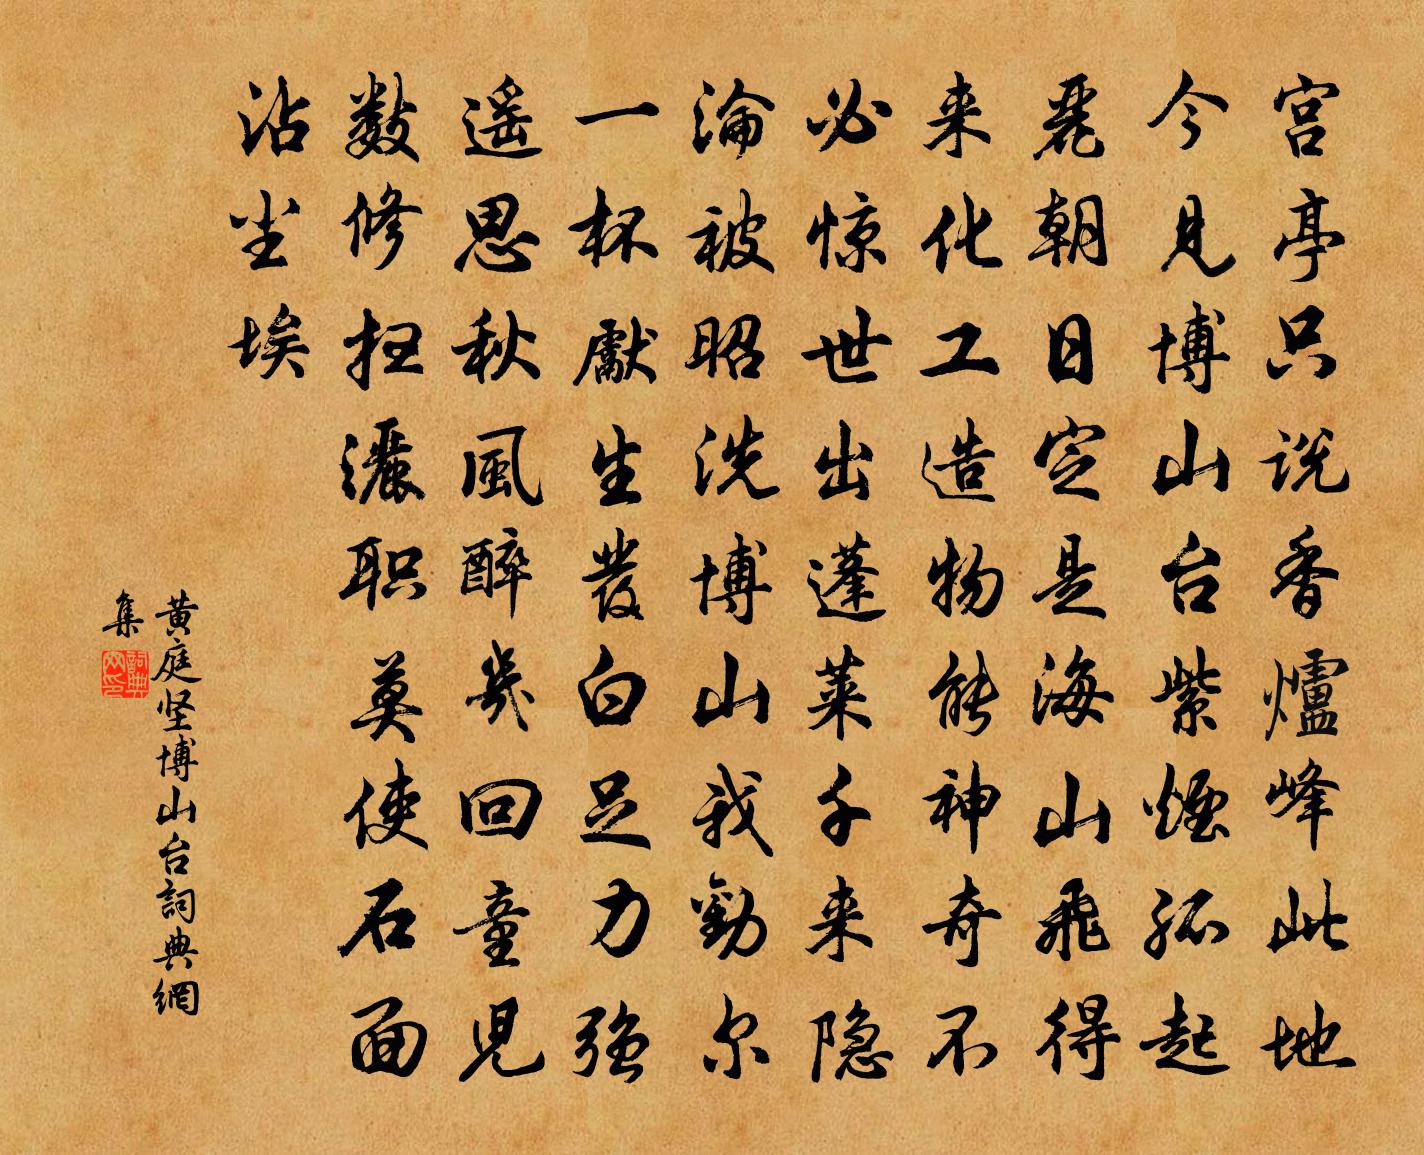 宫亭只说香爐峰此地
今见博山台紫煙孤起
麗朝日定是海山飛得
来化工造物能神奇不
必惊世出蓬莱千来隐
淪被昭洗博山我勸尔
一杯獻生發白足力强
遥思秋風醉幾回童児
数修扫灑职莫使石面
沾尘埃
黄庭坚博山台詞典網
集
詞典网印